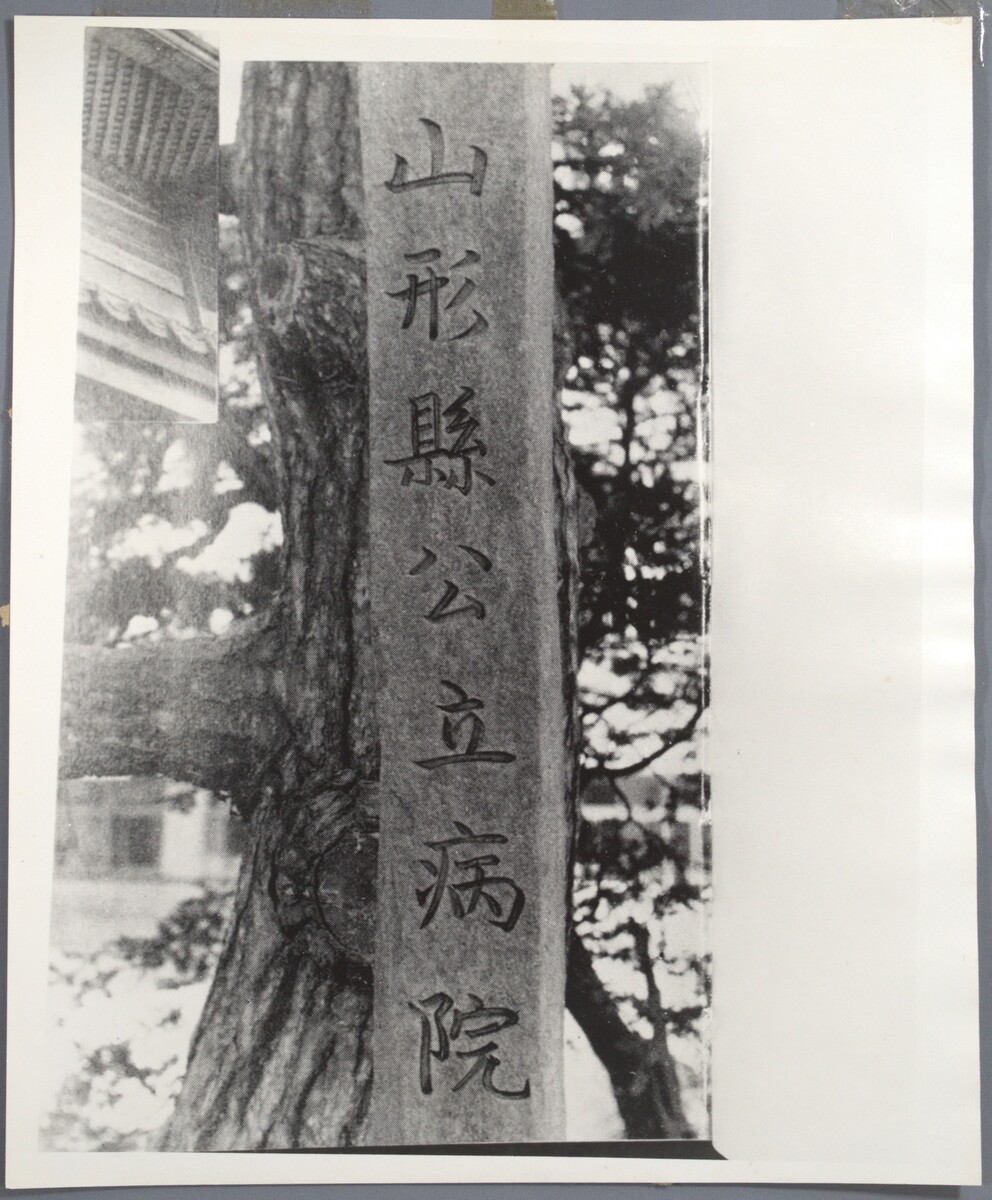 山形縣公立病院